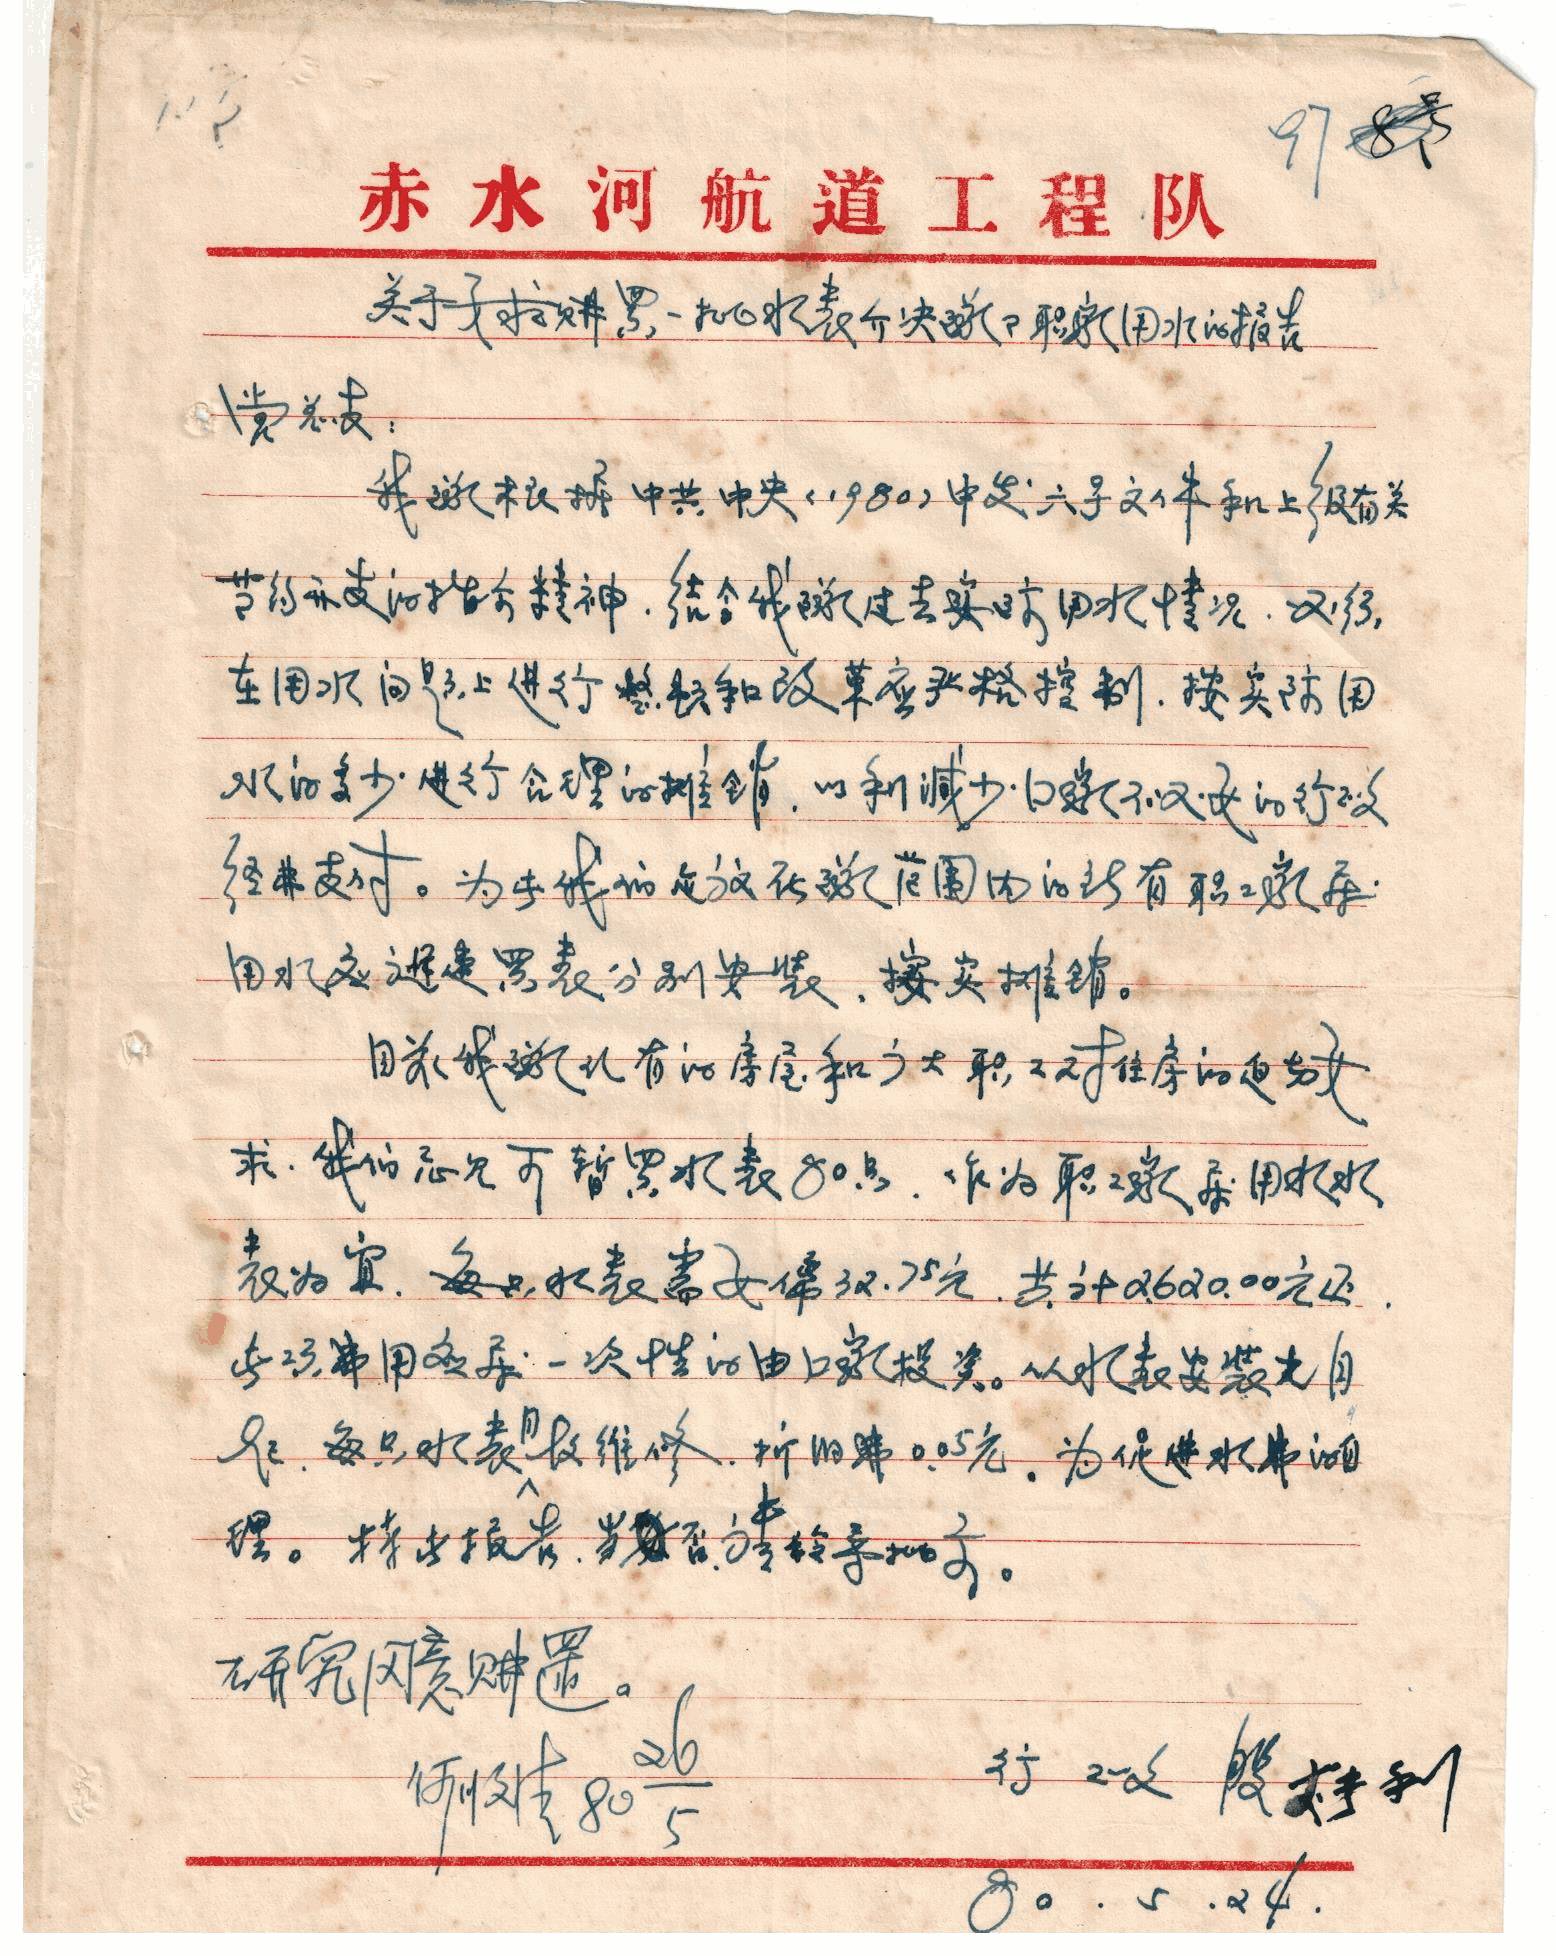 97 8号
赤水河航道工程队
关于要求购买一批水表介决队职家用水的报告
党总支：
我队根据中共中央（1980）中发六号文件和上级有关
节约开支的指介精神．结合我队过去实际用水情况．必须
在用水问题上进行整顿和改革应严格控制．按实际用
水的多少进行合理的摊销．以利减少口队不必要的行政
经弗支付。为此我们应放在队范围内的所有职工家属
用水应迅速买表分别安装．按实摊销。
目前我队现有的房屋和广大职工对住房的迫切要
求．我们忘见可暂买水表80只．作为职工家属用水水
表为宜．每只水表需要价32.75元．共计2620.00元正．
此项弗用应属一次性的由口家投资。从水表安装之日
起．每只水表月技维修．折旧弗0.05元。为促进水弗的
理。特此报告．当否请给予批示。
研究同意购置。
何顺清 80 26/5
行政 殷孝利
80.5.24.